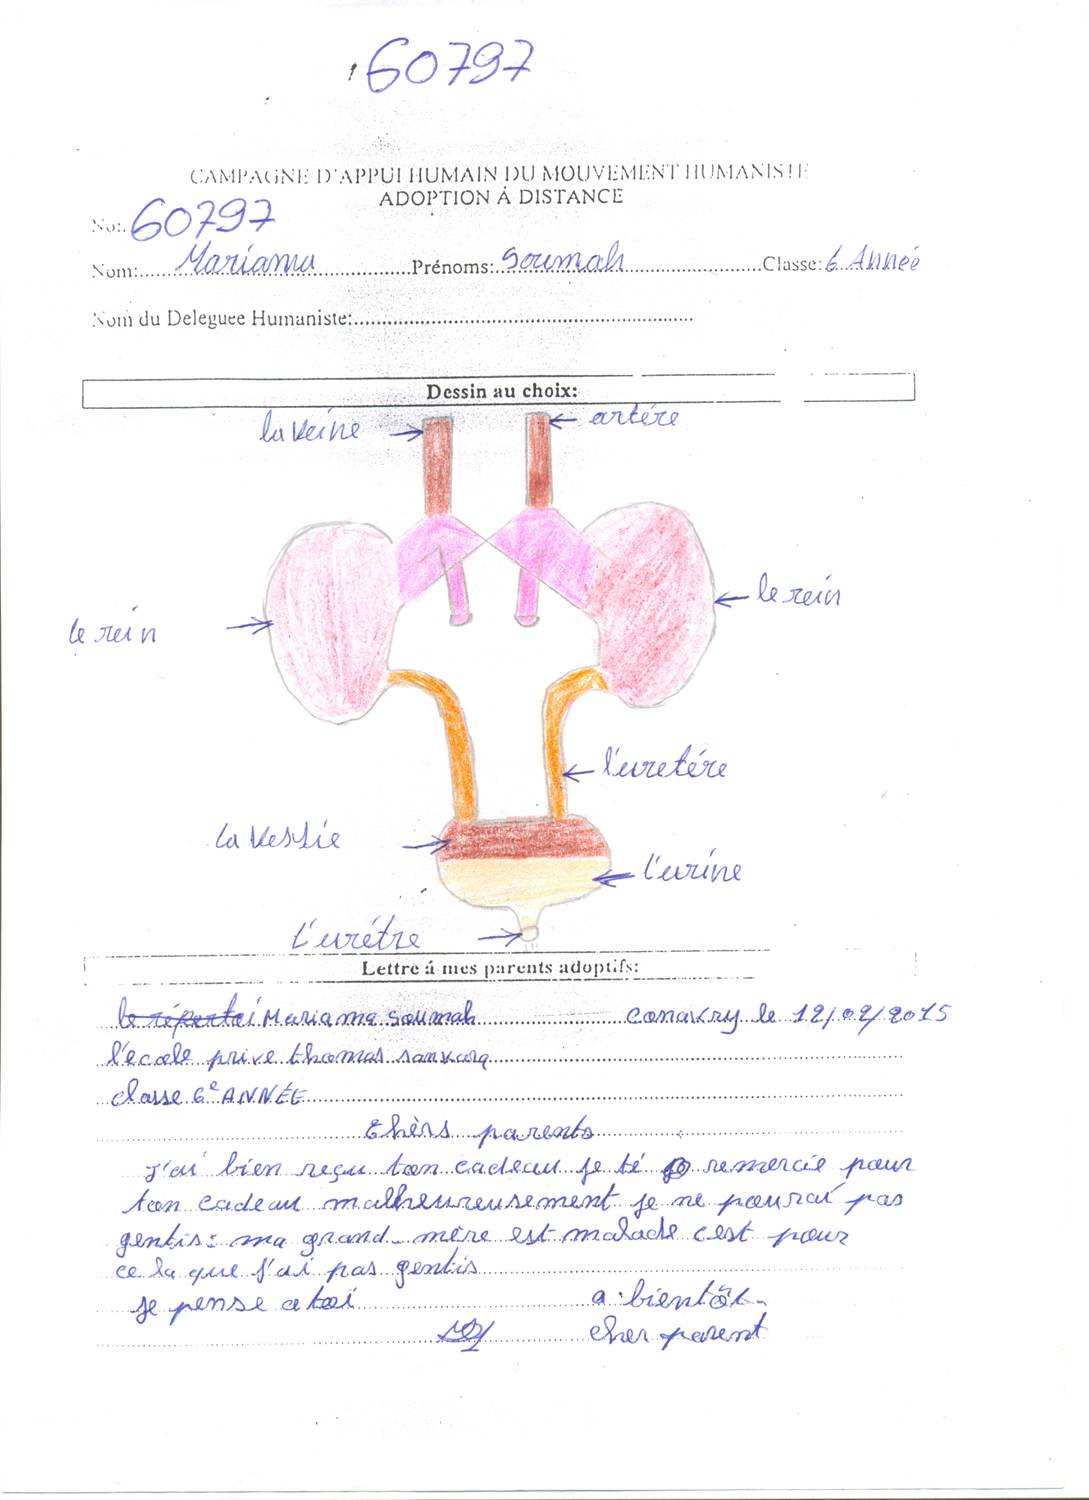 60797
CAMPAGNE D'APPUI HUMAIN DU MOUVEMENT HUMANISTE
ADOPTION Á DISTANCE
No:.60797
Nom:......Mariama..................Prénoms:.Soumah..........................Classe:6 Année
Nom du Deleguee Humaniste:......................................................
Dessin au choix:
la veine
artére
le rein
le rein
l'uretére
la vessie
l'urine
L'urétre
Lettre á mes parents adoptifs:
Mariama Soumah conakry le 12/02/2015
l'école prive thomas sankara
classe 6e ANNÉE
Chèrs parents
J'ai bien reçu ton cadeau je té remercie pour
ton cadeau malheureusement je ne pourai pas
gentis: ma grand-mère est malade cest pour
ce la que j'ai pas gentis
je pense a toi a bientôt
cher parent